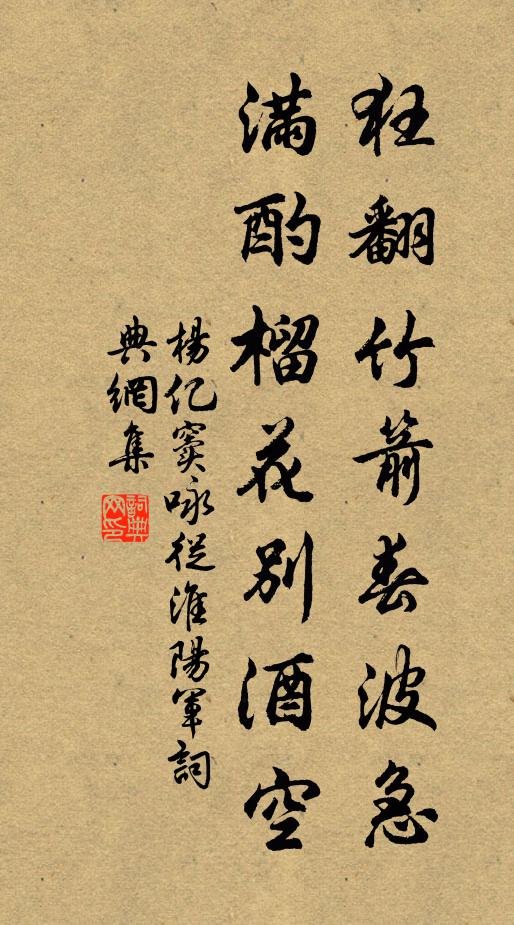 狂翻竹箭春波急
滿酌榴花別酒空
楊億 竇詠從淮陽軍詞
典網集
詞典網印